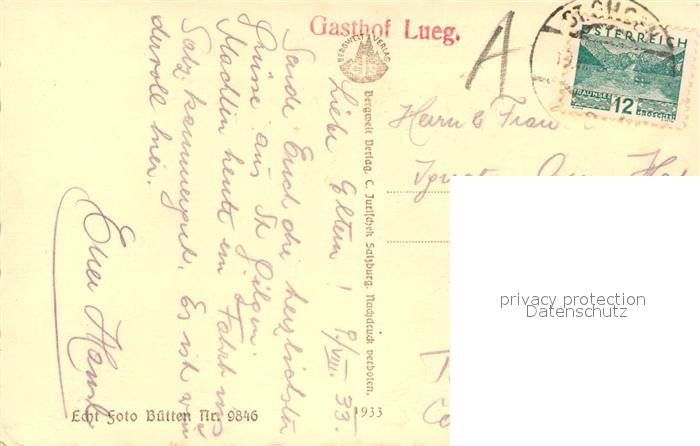 Gasthof Lueg.
A
ST. GILGEN
ÖSTERREICH
TRAUNSEE
12 GROSCHEN
BERGWELT VERLAG
Bergwelt Verlag, C. Jurischek Salzburg. Nachdruck verboten.
1933
Echt Foto Bütten Nr. 9846
Herrn & Frau
9./VIII. 33.
Liebe Eltern!
Sende Euch die herzlichsten
Grüsse aus St Gilgen.
Machten heute eine Fahrt ins
Salzkammergut. Es ist wun
dervoll hier.
Euer
privacy protection
Datenschutz